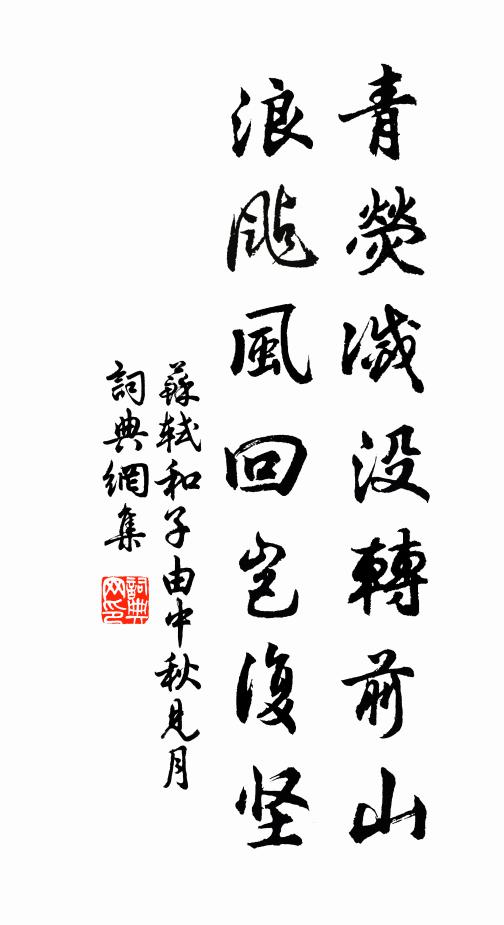 青熒滅没轉前山
浪颭風回豈復坚
蘇軾和子由中秋見月
詞典網集
詞典
网印